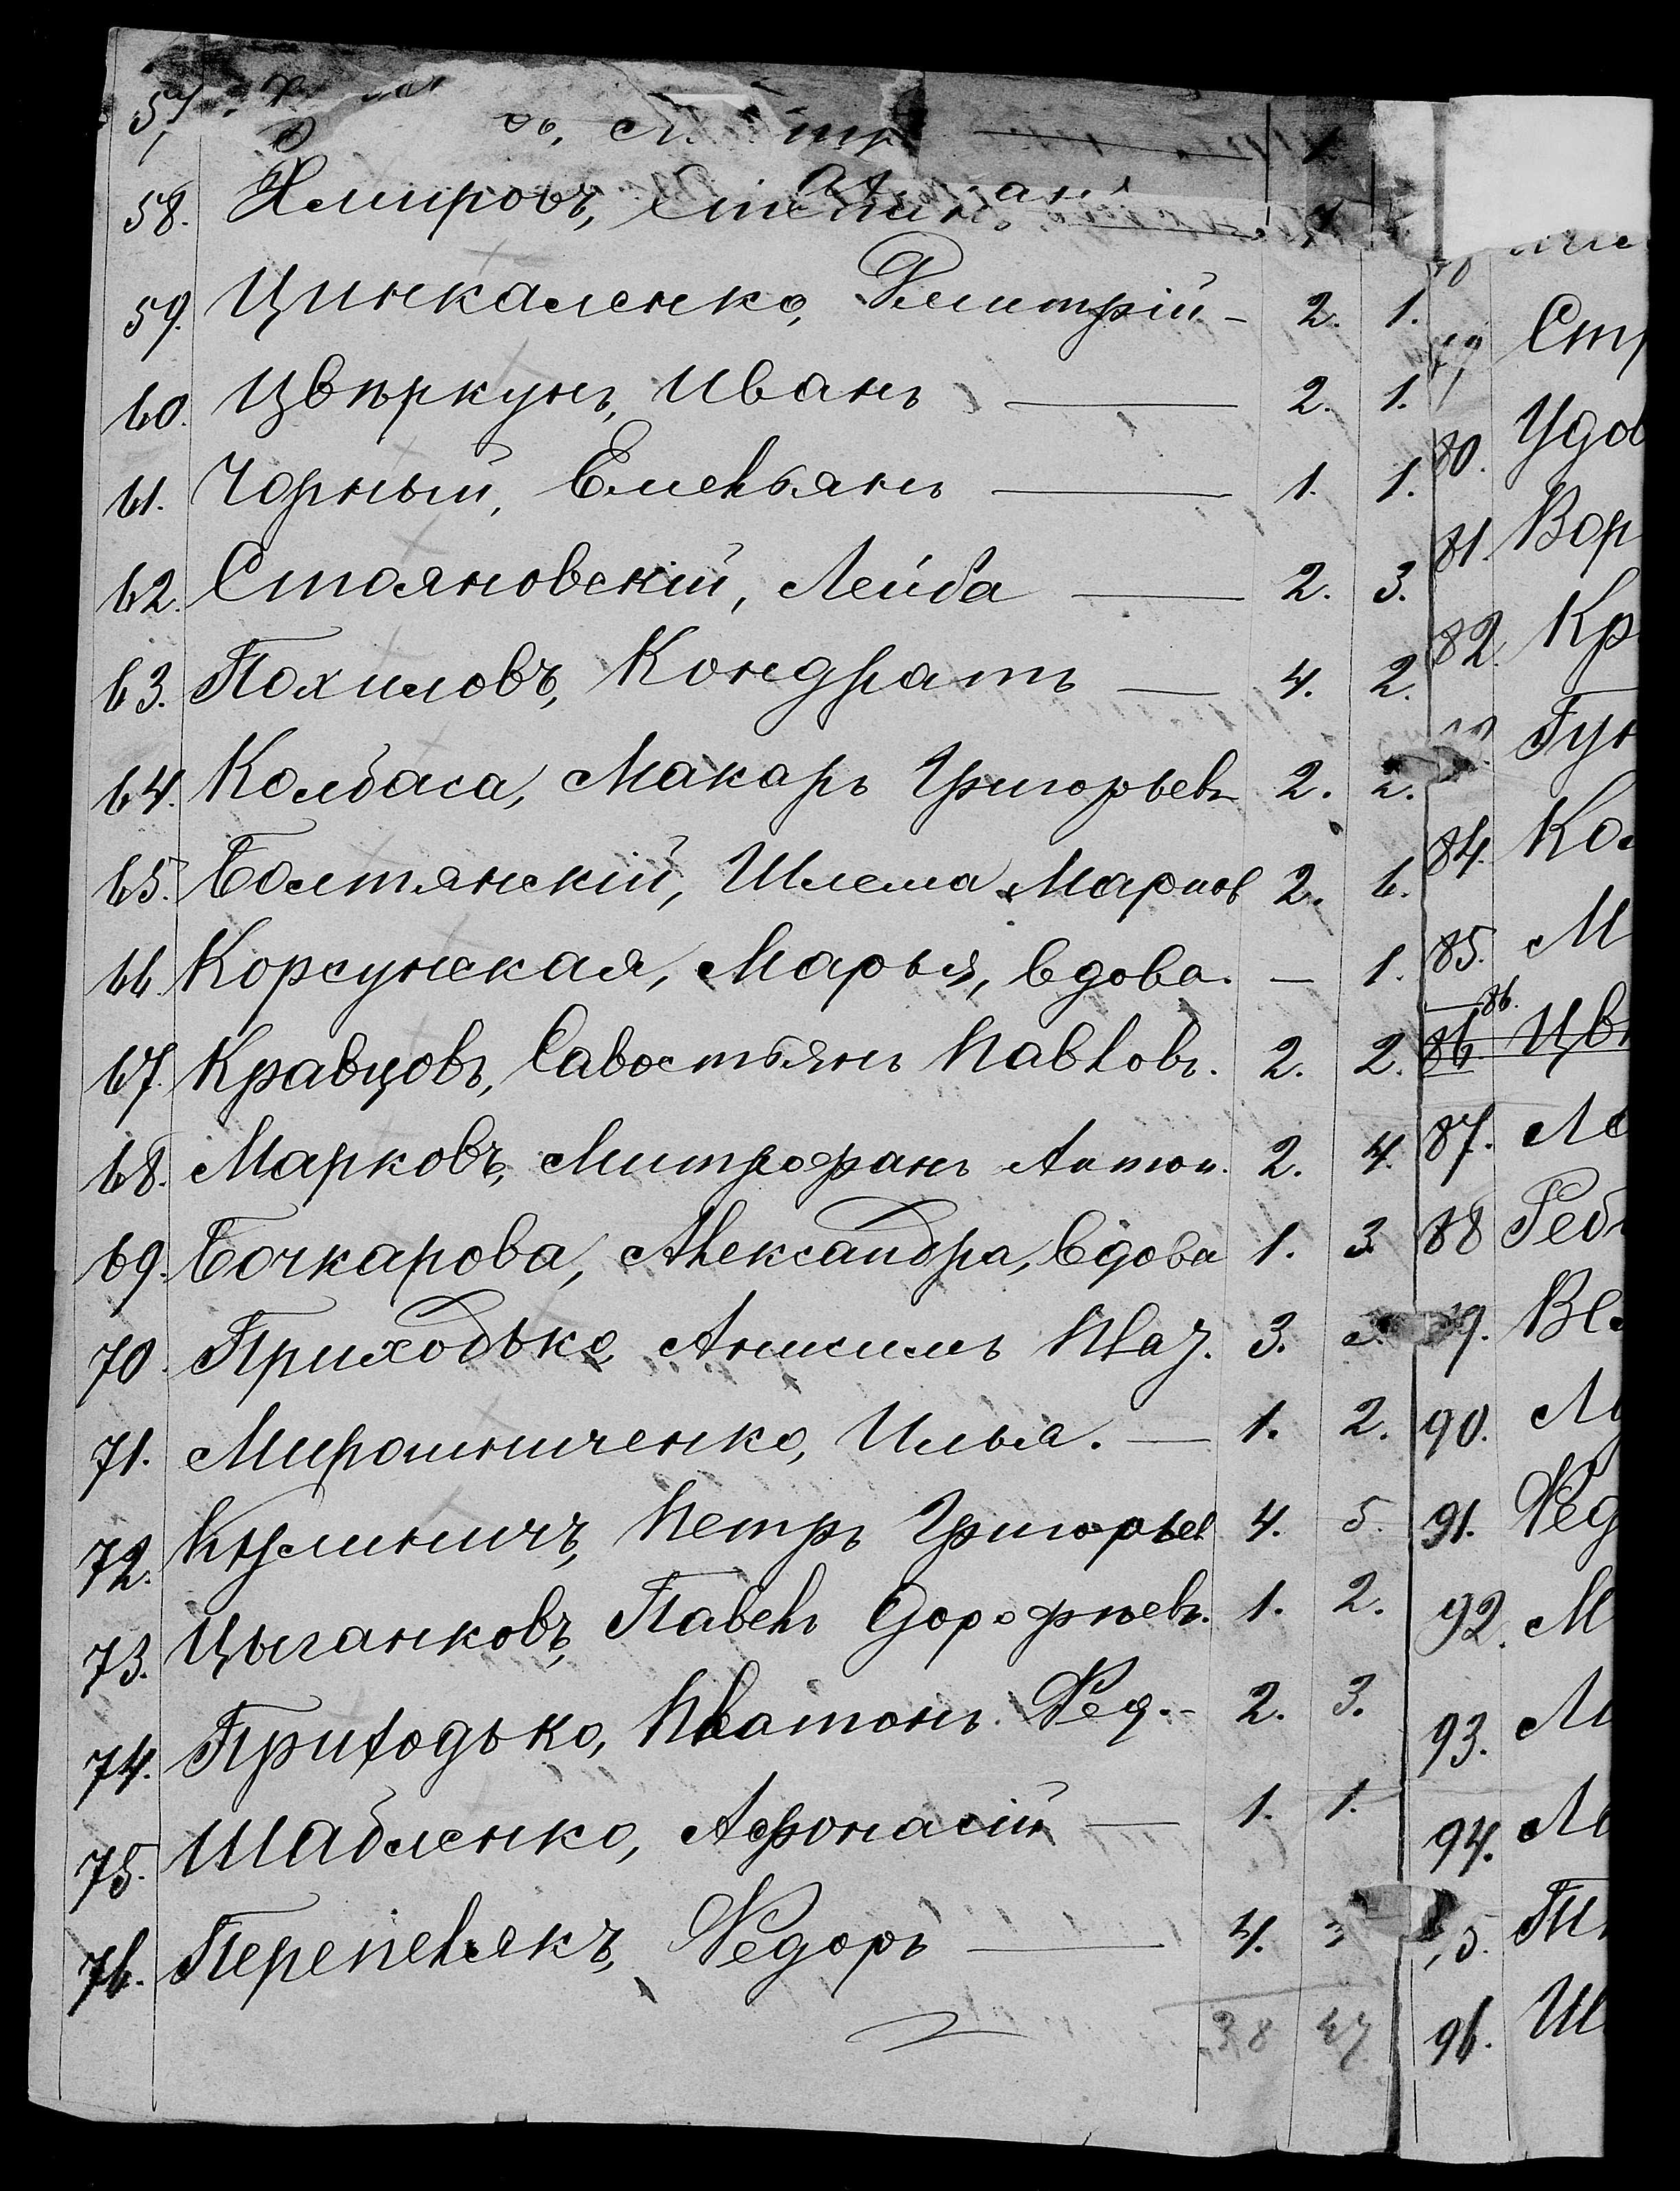 57.
58. Хмировъ, Степанъ 1
59. Цинкаленко, Дмитрій - 2. 1.
60. Цвѣркунъ, Иванъ — 2. 1.
61. Чорный, Емельянъ — 1. 1.
62. Стояновскій, Лейба — 2. 3.
63. Похиловъ, Кондратъ — 4. 2.
64. Колбаса, Макаръ Григорьевъ 2. 2.
65. Болтянскій, Шлема 2. 6.
66. Корсунская, Марья, вдова. — 1.
67. Кравцовъ, Савостьянъ Павловъ. 2. 2.
68. Марковъ, Митрофанъ Антон. 2. 4.
69. Бочкарова, Александра, вдова 1. 3.
70. Приходько, Анисимъ 3.
71. Мирошниченко, Илья. — 1. 2.
72. Кулиничъ, Петръ Григорьев 4. 5.
73. Цыганковъ, Павелъ Дорофѣевъ. 1. 2.
74. Приходько, Платонъ Фед. - 2. 3.
75. Шабленко, Афонасій — 1. 1.
76. Перепелякъ, Федоръ — 4. 3
38 47
Стр
80. Удов
81. Вор
82. Кр
Гун
84. Кол
85. М
86.
86. Цвѣ
87.
88 Реб
89. Вел
90.
91. Фед
92. М
93.
94.
95.
96. Ш